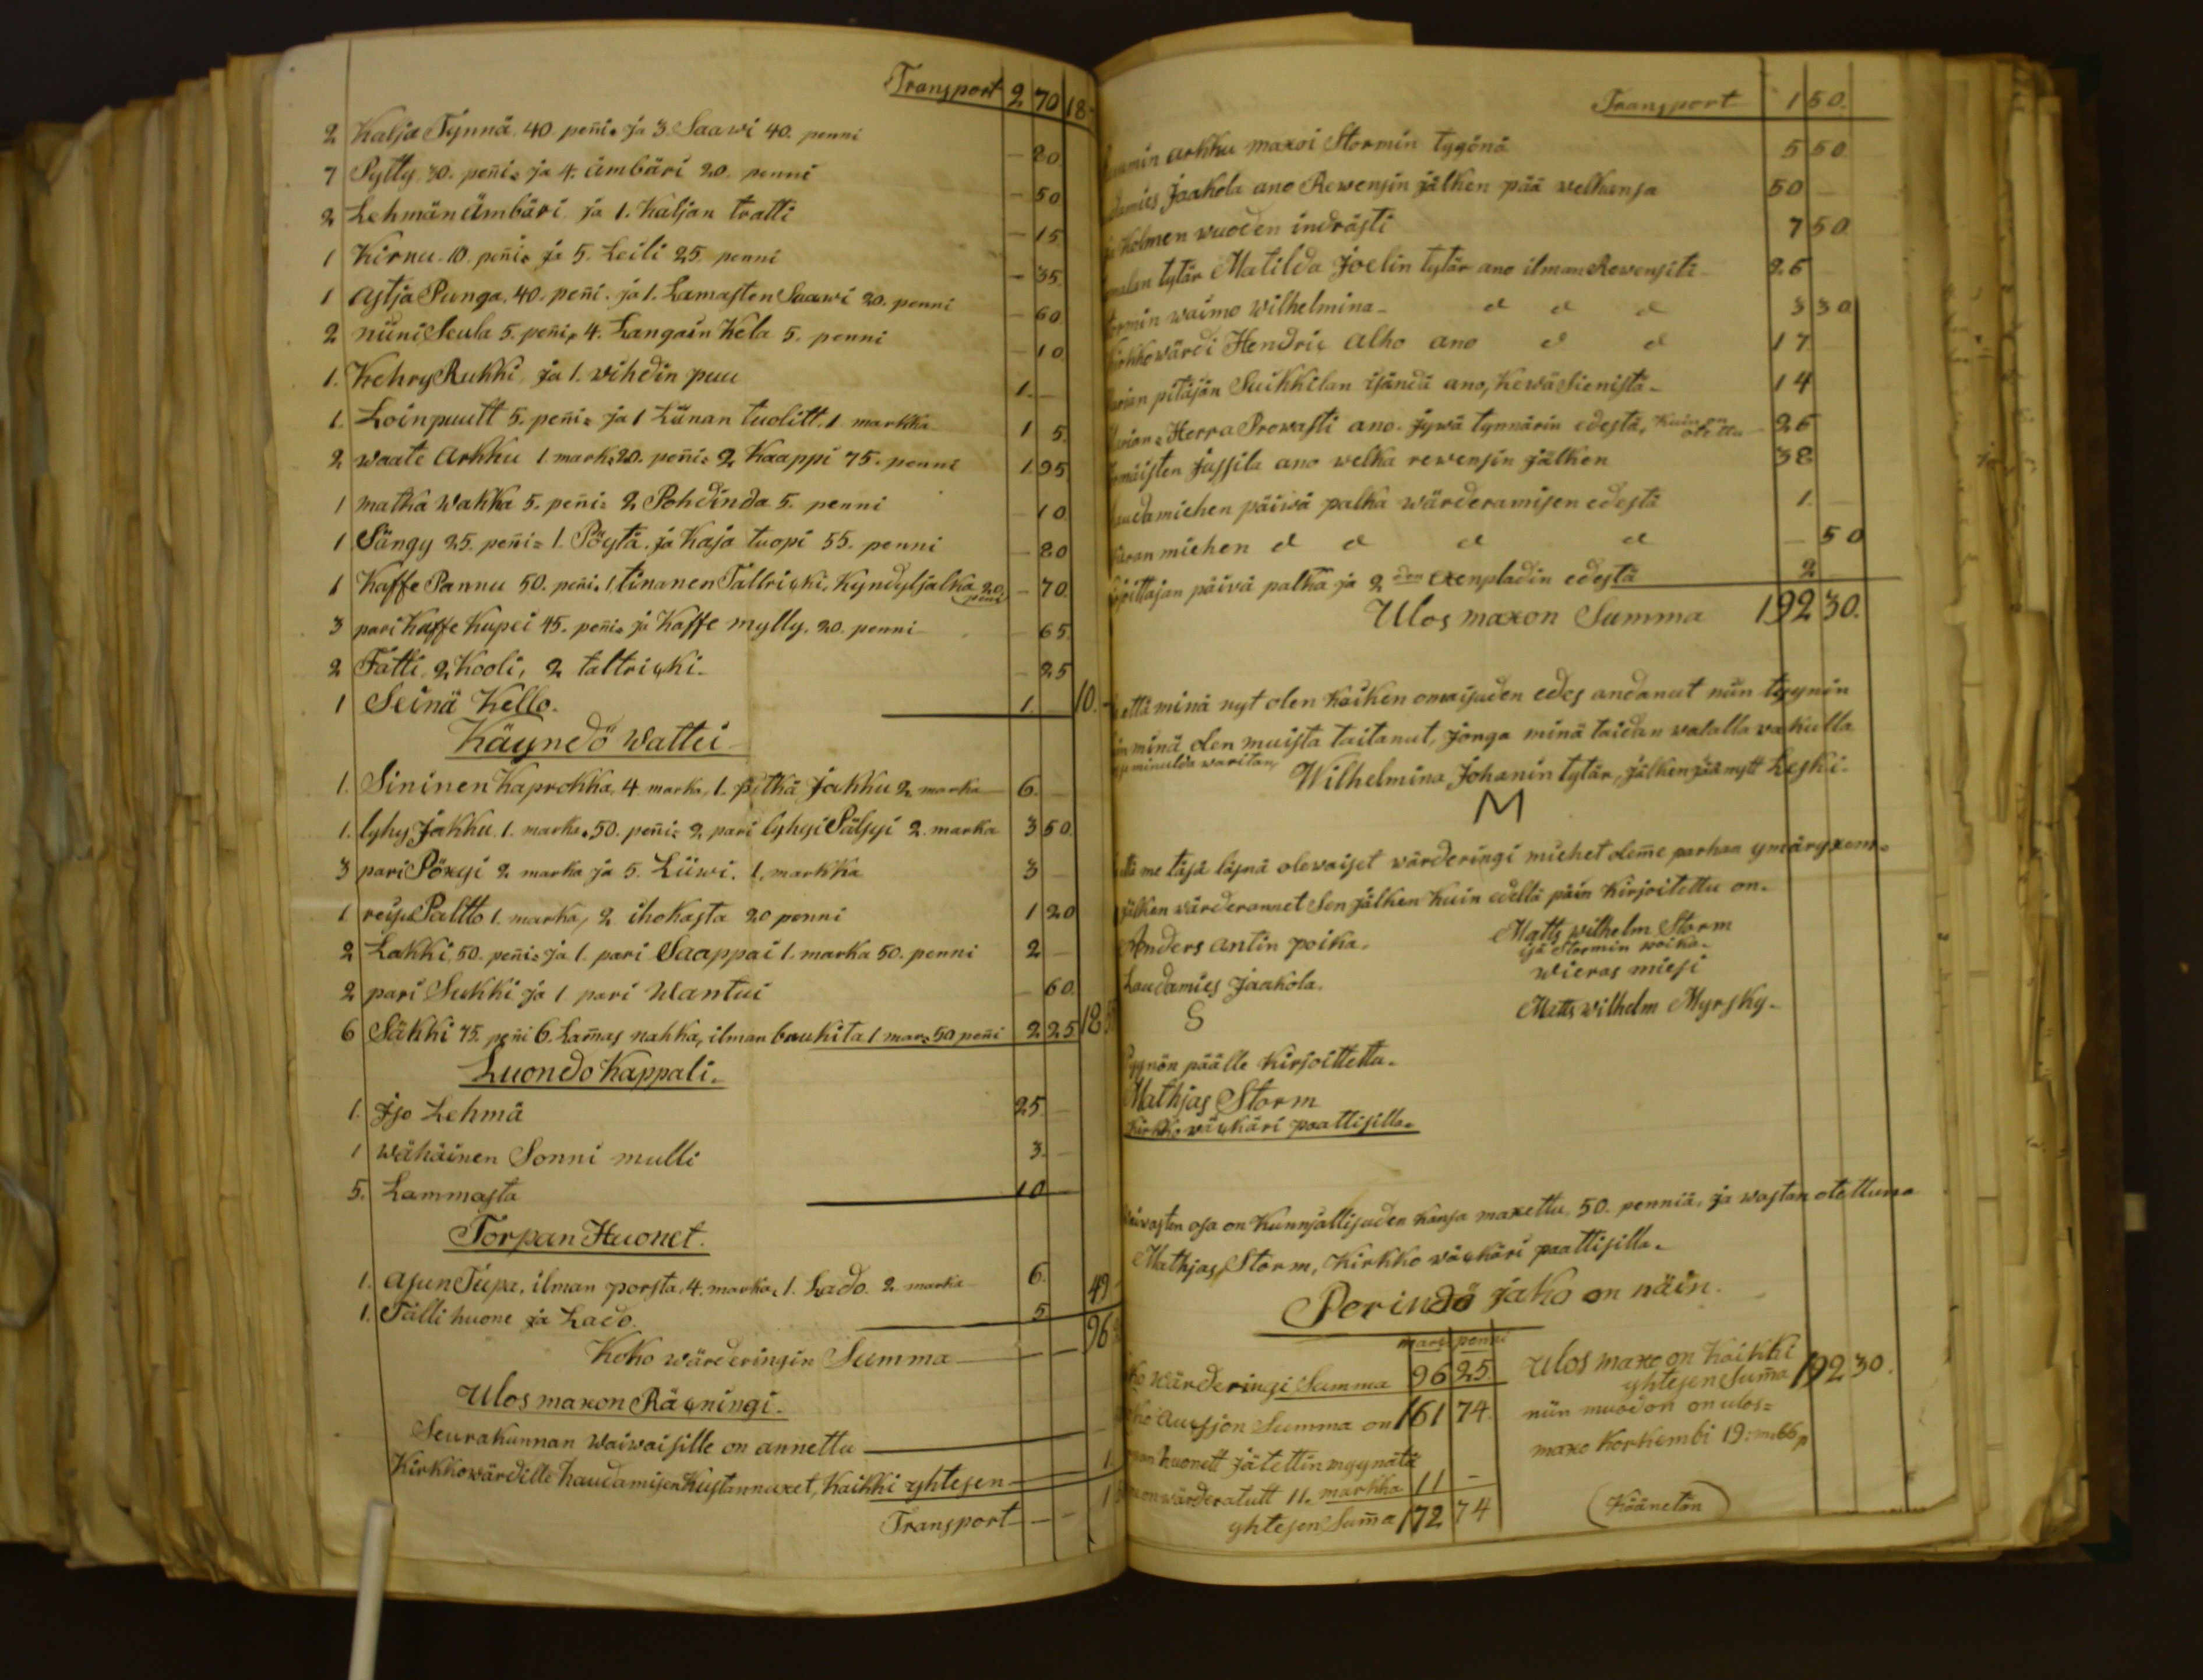 Transport 2 70 18
2 Kalja Tynnä 40. peñi. ja 3. Saawi 40. penni — 80
7 Pytty 30. peñi. ja 4. ämbäri 20. penni — 50
2 Lehmän ämbäri ja 1. Kaljan tratti — 15
1 Kirnu. 10. peñi. ja 5. Leili 25. penni — 35
1 astja Punga, 40. peñi. ja 1. Lamasten Saawi 20. penni — 60
2 niini Seula 5. peñi, 4. Langain Kela 5. penni — 10
1. Kehry Rukki, ja 1. vihdin puu 1. —
1. Loinpuutt 5. peñi. ja 1 Liinan tuolitt. 1 markka 1 5
2 waate arkku 1 mark. 20. peñi. 2 Kaappi 75. penni 1 95
1 matka wakka 5. peñi. 2 Pohdinda 5. penni 10
1 Sängy 25. peñi = 1. Pöytä. ja Kaja tuopi 55. penni — 80
1 Kaffe Pannu 50. peñi. 1. tinanen Tallricki, Kyndyljalka 20. peñi — 70
3 pari Kaffe Kupei 45. peñi. ja Kaffe mylly. 20. penni — 65
2 Fatti, 2 Kooli, 2 taltricki — 25
1 Seinä Kello. 1. 10.
Käyndö Wattei
1. Sininen Kaprokka, 4 marka, 1. pitkä Jakku 2 marka 6. —
1. lyhy Jakku. 1. marka. 50. peñi. 2 pari lyhyi Päljyi 2. marka 3 50
3 pari Pöxyi 2 marka ja 5. Liiwi. 1. markka 3 —
1. reisu Paltto 1. marka, 2 ihokasta 20 penni 1 20
2 Lakki, 50. peñi. ja 1. pari Saappai 1. marka 50. penni 2 —
2 pari Sukki ja 1 pari Wantui — 60
6 Säkki 75. peñi 6. Lamas nahka, ilman baukita 1 mar. 50 peñi 2 25 18
Luondo Kappali.
1. Iso Lehmä 25 —
1 wähäinen Sonni mulli 3. —
5. Lammasta 10 —
Torpan Huonet.
1. asun Tupa, ilman porsta, 4. marka, 1. Lado. 2 marka 6. 49
1. Tälli huone ja Lado. 5 96
Koko wärderingin Summa — —
Ulos maxon Räcningi.
Seurakunnan waiwaisille on annettu 1.
Kirkkowärdille haudamisen Kustannuxet, Kaikki yhtesen 1
Transport — —
Transport 1 50.
arkku maxoi Stormin tygönä 5 50
Jaakola ano Rewensin jälken pää welkansa 50 —
Kolmen wuoden indrästi 7 50
tytär Matilda Joelin tytär ano ilman Rewensitä 26
waimo Wilhelmina d d d 3 30
Hendric Alho ano d d 17
pitäjän Suikkilan isändä ano, Kewäsienistä 14
Herra Prowasti ano. Jywä tynnärin edestä, Kuin on otettu 26
Jussila ano welka rewensin jälken 38
päiwä palka wärderamisen edestä 1. —
miehen d d d d — 50
päivä palka ja 2 den exenpladin edestä 2
Ulos maxon Summa 192 30.
että minä nyt olen Kaiken omaisuden edes andanut niin tyynin
minä olen muista taitanut, jonga minä taidan walalla wahulla
minulda waritan,
Wilhelmina Johanin tytär, jälken jäämytt Leski.
M
me täsä läsnä olewaiset wärderingi miehet oleme parhan ymäryxem.
jälken wärderannet Sen jälken Kuin edellä päin Kirjoitettu on.
Anders antin poika.
Matts wilhelm Storm
isä Stormin poika.
Laudamies Jaakola.
wieras miesi
S
Matts wilhelm Myrsky.
päälle Kirjoitettu.
Mathjas Storm
Kirkko wäckäri paattisilla.
osa on Kunnjallisuden kansa maxettu, 50. penniä. ja wastan otettuna
Mathjas Storm, Kirkko wäckäri paattisilla.
Perindö jako on näin.
mark penni
wärderingi Summa 96 25
Ulos maxo on Kaikki yhtesen Suma 192 30.
Aucsjon Summa on 161 74
niin muodon on ulos=
huonett jätettin myynätä
maxo Korkembi 19: m. 66 p
wärderatutt 11. markka 11 —
yhtesen Suma 172 74
(Käänetän)